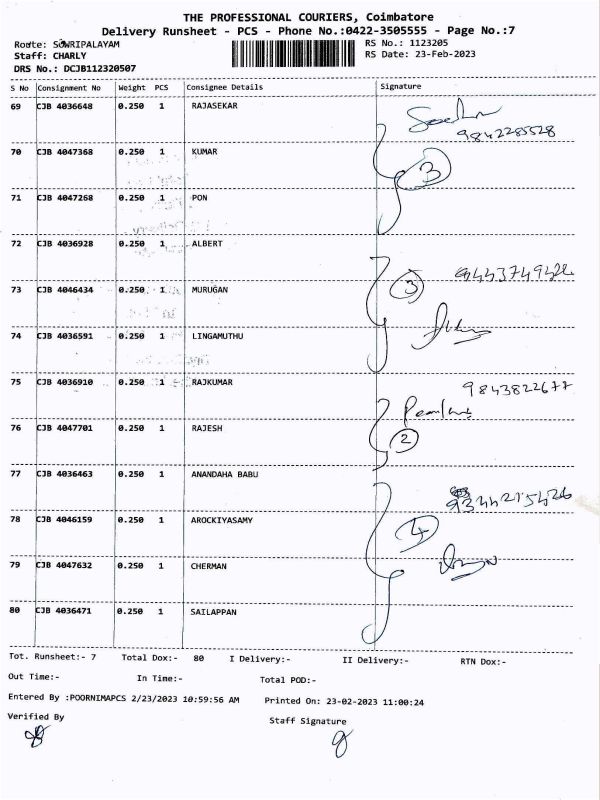 THE PROFESSIONAL COURIERS, Coimbatore
Delivery Runsheet - PCS - Phone No.:0422-3505555 - Page No.:7
Route: SOWRIPALAYAM
RS No.: 1123205
Staff: CHARLY
RS Date: 23-Feb-2023
DRS No.: DCJB112320507
S No Consignment No Weight PCS Consignee Details Signature
69 CJB 4036648 0.250 1 RAJASEKAR
9842285528
70 CJB 4047368 0.250 1 KUMAR
3
71 CJB 4047268 0.250 1 PON
72 CJB 4036928 0.250 1 ALBERT
9443749422
73 CJB 4046434 0.250 1 MURUGAN
3
74 CJB 4036591 0.250 1 LINGAMUTHU
75 CJB 4036910 0.250 1 RAJKUMAR
9843822677
76 CJB 4047701 0.250 1 RAJESH
2
77 CJB 4036463 0.250 1 ANANDAHA BABU
78 CJB 4046159 0.250 1 AROCKIYASAMY
4
79 CJB 4047632 0.250 1 CHERMAN
80 CJB 4036471 0.250 1 SAILAPPAN
Tot. Runsheet:- 7 Total Dox:- 80 I Delivery:- II Delivery:- RTN Dox:-
Out Time:- In Time:- Total POD:-
Entered By :POORNIMAPCS 2/23/2023 10:59:56 AM Printed On: 23-02-2023 11:00:24
Verified By Staff Signature